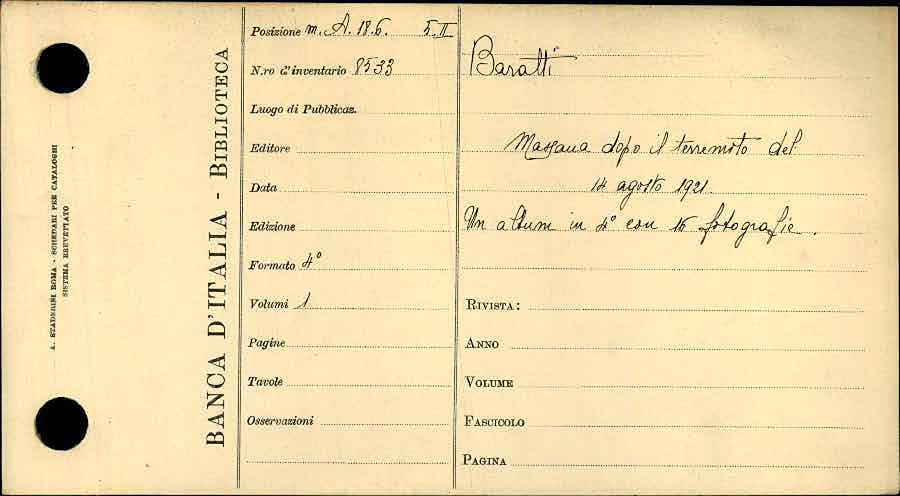 A. STADERINI ROMA - SCHEDARI PER CATALOGHI
SISTEMA BREVETTATO
BANCA D'ITALIA - BIBLIOTECA
Posizione m. A. 18.6. 5.II
N.ro d'inventario 8533
Luogo di Pubblicaz.
Editore
Data
Edizione
Formato 4°
Volumi 1
Pagine
Tavole
Osservazioni
Baratti
Massaua dopo il terremoto del
14 agosto 1921.
Un album in 4° con 16 fotografie.
RIVISTA:
ANNO
VOLUME
FASCICOLO
PAGINA